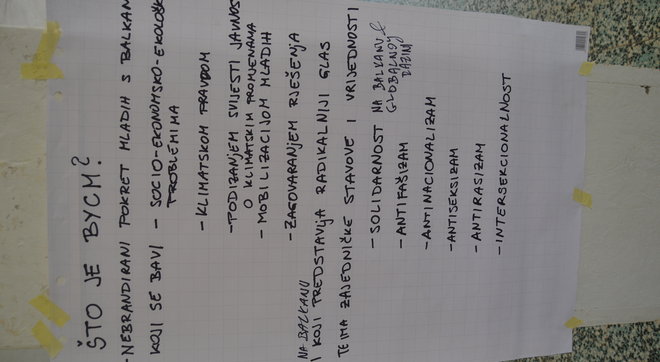 ŠTO JE BYCM?
-NEBRANDIRANI POKRET MLADIH S BALKAN
KOJI SE BAVI - SOCIO-EKONOMSKO-EKOLOŠK
PROBLEMIMA
- KLIMATSKOM PRAVDOM
-PODIZANJEM SVIJESTI JAVNOS
O KLIMATSKIM PROMJENAMA
- MOBILIZACIJOM MLADIH
- ZAGOVARANJEM RJEŠENJA
NA BALKANU
I KOJI PREDSTAVLJA RADIKALNIJI GLAS
TE IMA ZAJEDNIČKE STAVOVE I VRIJEDNOSTI
- SOLIDARNOST NA BALKANU &
GLOBALNOJ
RAZINI
- ANTIFAŠIZAM
- ANTINACIONALIZAM
- ANTISEKSIZAM
- ANTIRASIZAM
- INTERSEKCIONALNOST